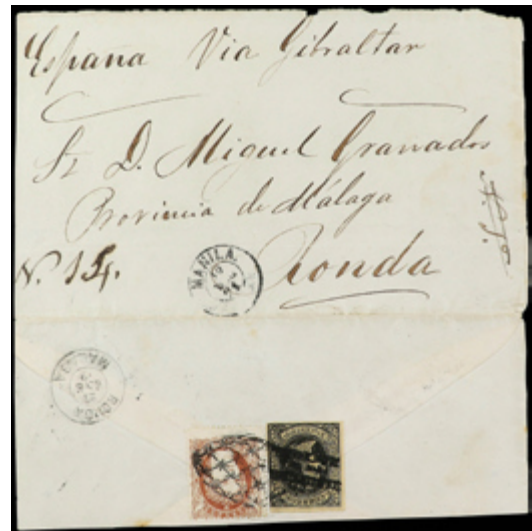 España Via Gibraltar
Sr D. Miguel Granados
Provincia de Málaga
Ronda
N. 14.
MANILA
RONDA
MALAGA